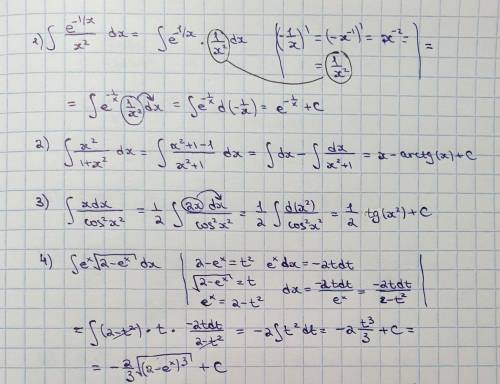 1) ∫ e^(-1/x)/x² dx = ∫ e^(-1/x) · 1/x² dx |(-1/x)' = (-x^(-1))' = x^(-2) = | =
= 1/x²
= ∫ e^(-1/x) 1/x² dx = ∫ e^(-1/x) d(-1/x) = e^(-1/x) + C
2) ∫ x²/(1+x²) dx = ∫ (x²+1-1)/(x²+1) dx = ∫ dx - ∫ dx/(x²+1) = x - arctg(x) + C
3) ∫ xdx/cos²x² = 1/2 ∫ 2x dx/cos²x² = 1/2 ∫ d(x²)/cos²x² = 1/2 tg(x²) + C
4) ∫ e^x √(2-e^x) dx | 2-e^x = t² e^x dx = -2tdt |
√(2-e^x) = t dx = -2tdt/e^x = -2tdt/(2-t²)
e^x = 2-t²
= ∫ (2-t²) · t · -2tdt/(2-t²) = -2 ∫ t² dt = -2 t³/3 + C =
= -2/3 √((2-e^x)³) + C